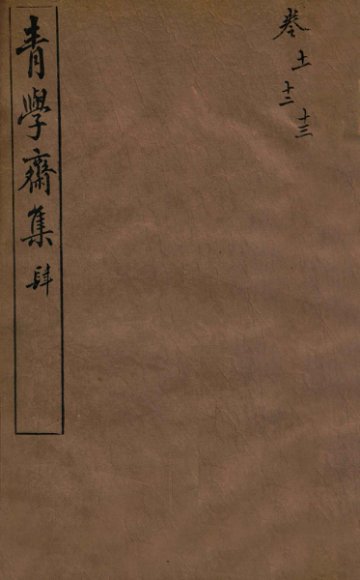 卷十一
十二
十三
青學齋集 肆